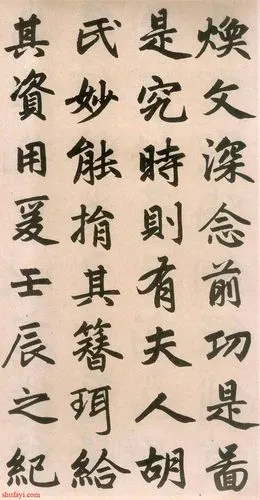 煥文深念前功是啚
是究時則有夫人胡
氏妙能揃其簪珥給
其資用爰壬辰之紀
shufayi.com